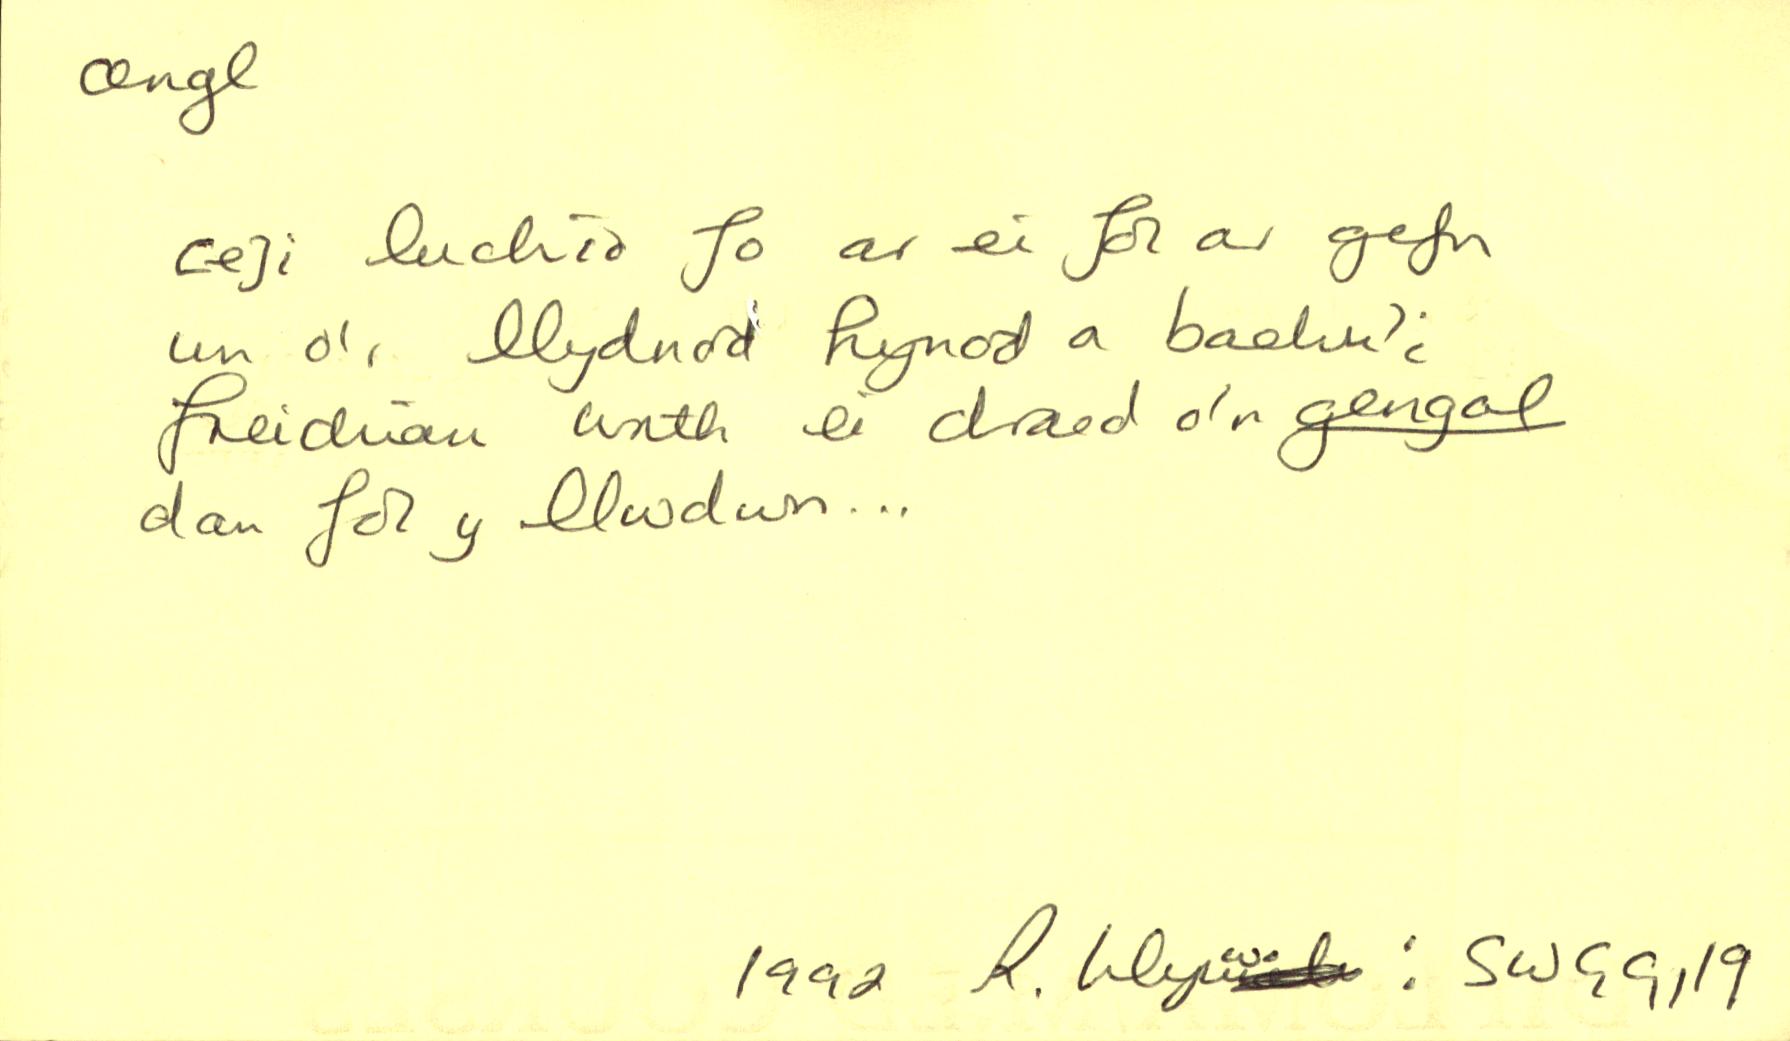 cengl
ceji luchio fo ar ei fol ar gefn
un o'r llydnod hynod a bachu'i
freichiau wrth ei draed o'n gengal
dan fol y llwdwn...
1992 R. : SWGG, 19